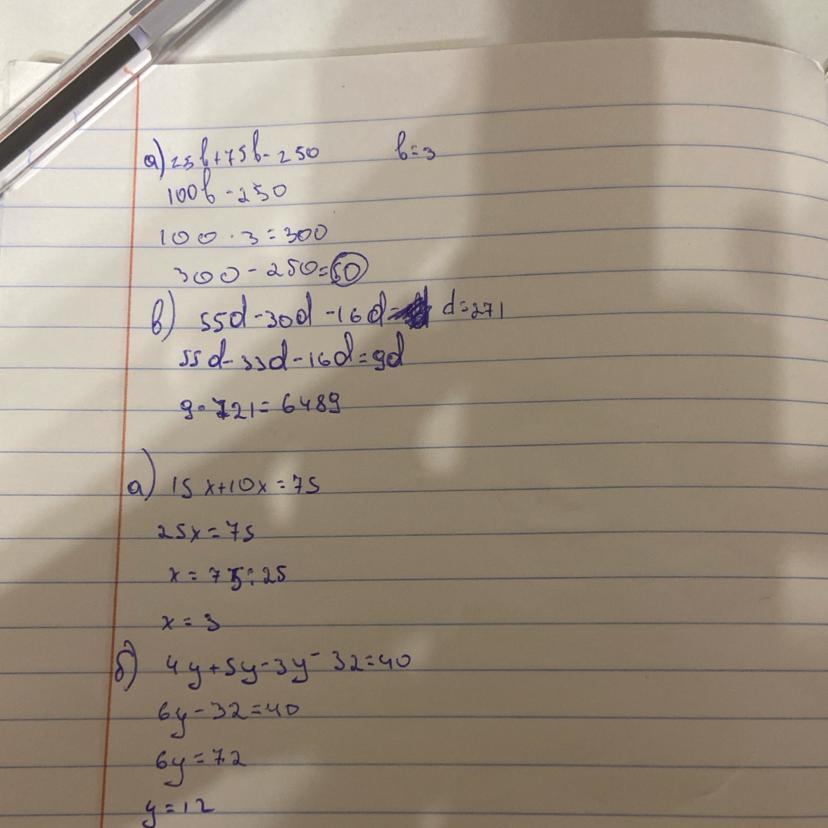 а) 25b+75b-250 b=3
100b-250
100·3=300
300-250=50
в) 55d-30d-16d= d=271
55d-33d-16d=9d
9·721=6489
а) 15x+10x=75
25x=75
x=75:25
x=3
б) 4y+5y-3y-32=40
6y-32=40
6y=72
y=12